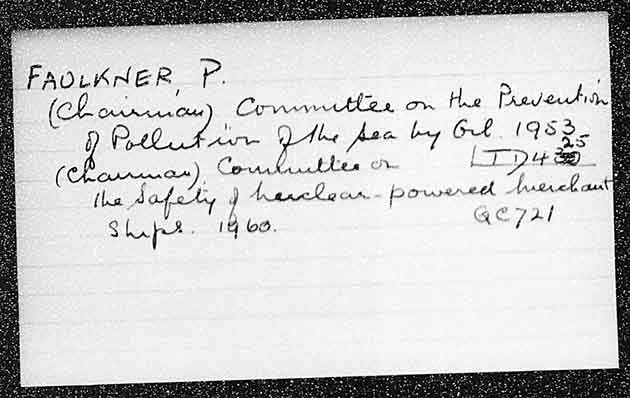 FAULKNER, P.
(Chairman) Committee on the Prevention
of Pollution of the Sea by Oil. 1953
(Chairman) Committee on TD425
the Safety of Nuclear-powered Merchant
Ships. 1960. GC721